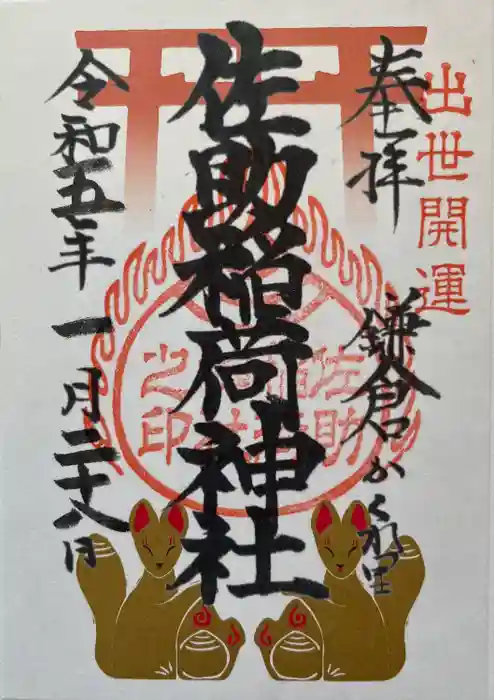 出世開運
奉拝
鎌倉かくれ里
佐助稲荷神社
佐助稲荷神社之印
令和五年一月二十八日